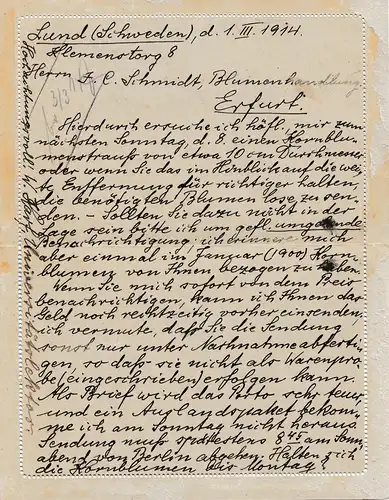 Lund (Schweden), d. 1. III. 1914.
Klemenstorg 8
Herrn F. C. Schmidt, Blumenhandlung
Erfurt.
Hierdurch ersuche ich höfl., mir zum
nächsten Sonntag, d. 8. einen Kornblu-
menstrauss von etwa 10 cm Durchmesser
oder wenn Sie das im Hinblick auf die wei-
te Entfernung für richtiger halten,
die benötigten Blumen lose, zu sen-
den. – Sollten Sie dazu nicht in der
Lage sein bitte ich um gefl. umgehende
Benachrichtigung; ich erinnere mich
aber einmal im Januar (1900) Korn-
blumen von Ihnen bezogen zu haben.
Wenn Sie mich sofort von dem Preis
benachrichtigen, kann ich Ihnen das
Geld noch rechtzeitig vorher einsenden;
ich vermute, daß Sie die Sendung
sonst nur unter Nachnahme abferti-
gen, so daß sie nicht als Warenpro-
be (eingeschrieben) erfolgen kann.
Als Brief wird das Porto sehr teuer
und ein Auslandspaket bekom-
me ich am Sonntag nicht heraus.
Sendung muß spätestens 8 45 am Sonn-
abend von Berlin abgehen. Halten sich
die Kornblumen bis Montag?
Hochachtungsvoll